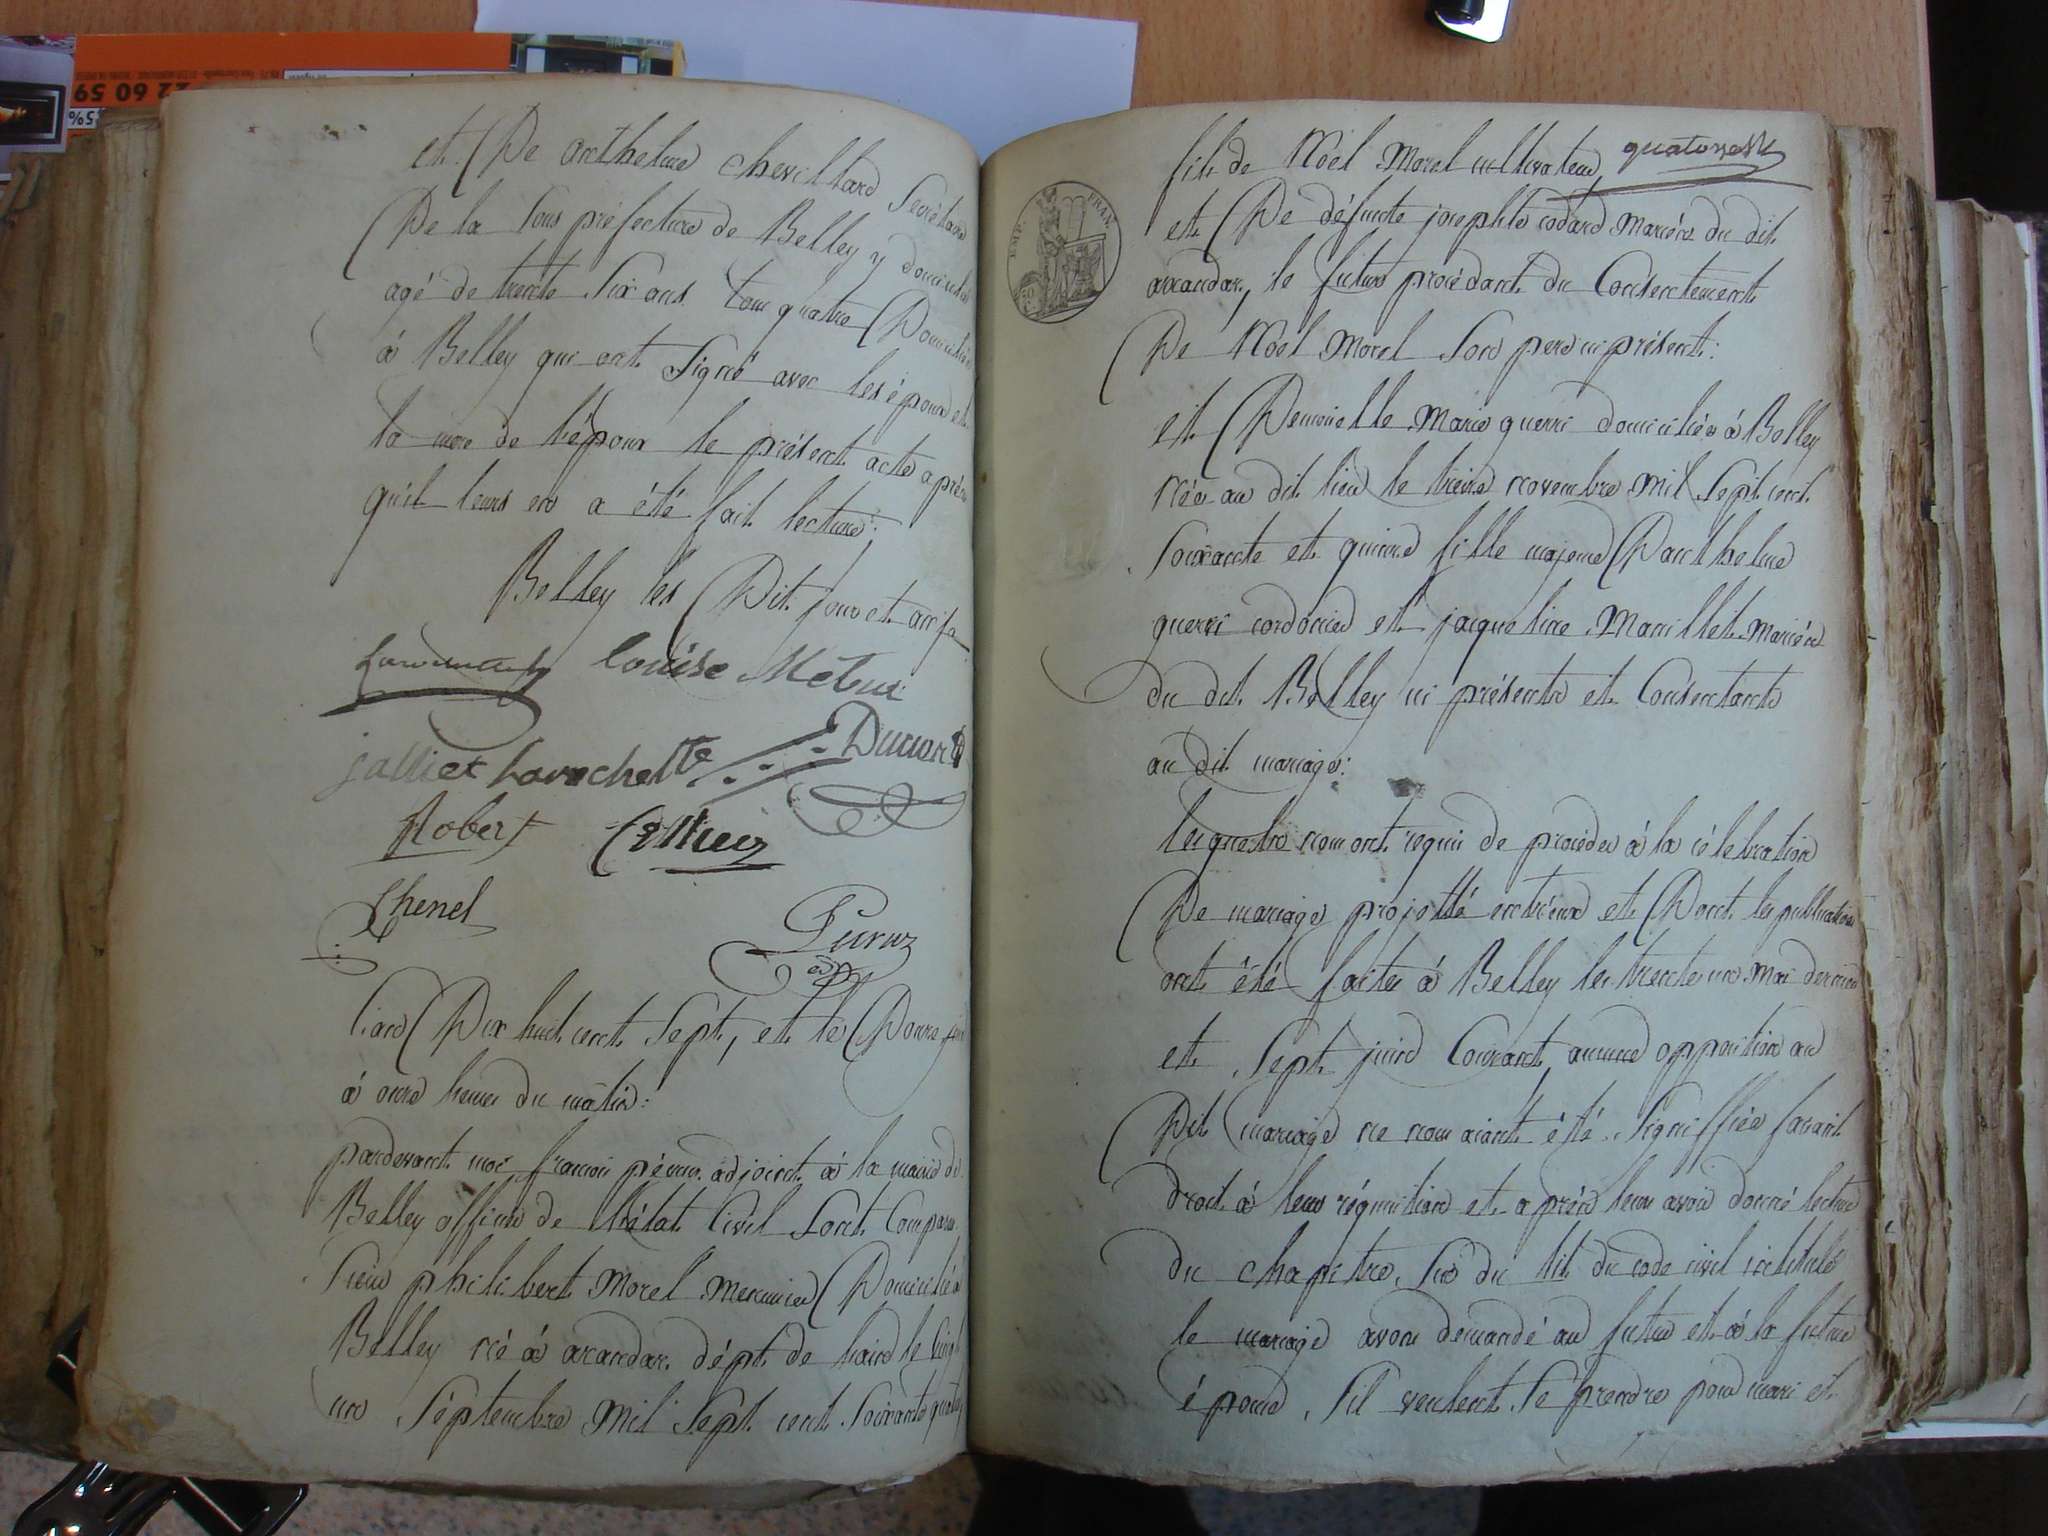 22 60 59
et De anthelme Chevillard Secrétaire
De la Sous préfecture de Belley y domicilié
agé de trente Six ans. tous quatre Domiciliés
à Belley qui ont Signé avec les époux et
la mere de l'époux le présent acte après
qu'il leurs en a été fait lecture:
Belley les Dit jour et an
louise
jalliet Larochette
Robert
Chenel
l'an Dix huit cent Sept, et le Douze juin
à onze heures du matin:
pardevant moi françois adjoint à la mairie de
Belley officier de l'état Civil Sont Comparus
Sieur philibert Morel Menuisier Domicilié à
Belley né à arandas dépt. de l'ain le vingt
un Septembre Mil Sept cent Soixante quatorze
quatorze
EMP. FRAN.
fils de Noël Morel cultivateur
et De défunte josephte Mariés du dit
arandas, le futur procédant du Consentement
De Noël Morel Son pere ici présent:
et Demoiselle Marie guerri domiciliée à Belley
Née au dit lieu le treize novembre Mil Sept cent
Soixante et quinze fille majeure D'anthelme
guerri cordonier et jacqueline Manillet Mariés
du dit Belley ici présents et Consentants
au dit mariage:
lesquels nous ont requis de procéder à la célébration
De mariage projetté entr'eux et Dont les publications
ont été faites à Belley les trente un Mai dernier
et Sept juin Courant, aucune opposition au
Dit mariage ne nous aiant été Signiffiée faisant
droit à leur réquisition et après leur avoir donné lecture
du chapitre Six du tit. du code civil intitulé
le mariage avons demandé au futur et à la future
épouse S'il veulent Se prendre pour mari et